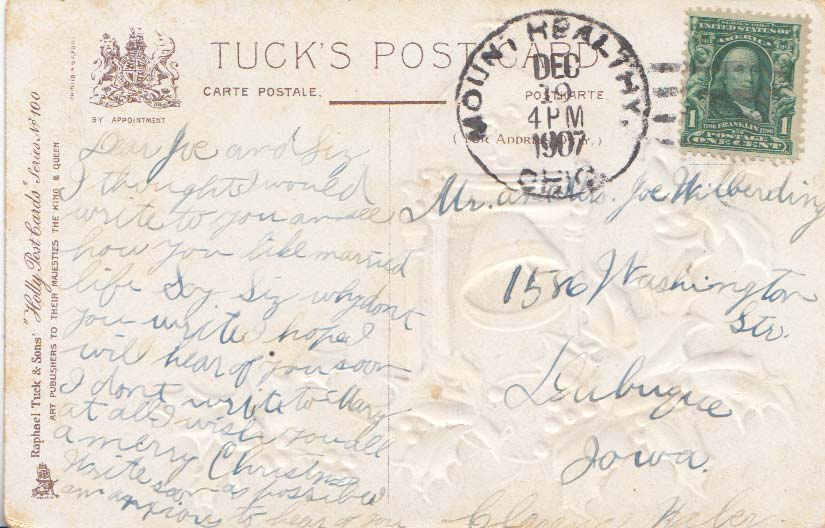 TUCK'S POST CARD
CARTE POSTALE.
POSTKARTE.
BY APPOINTMENT
(FOR ADDRESS ONLY.)
PRINTED IN SAXONY
Raphael Tuck & Sons' "Holly Post Cards" Series No 100
ART PUBLISHERS TO THEIR MAJESTIES THE KING & QUEEN
MOUNT HEALTHY,
DEC
4 PM
1907
OHIO
SERIES 1902
UNITED STATES OF
AMERICA
1706 FRANKLIN 1790
1 POSTAGE 1
ONE CENT
Dear Joe and Siz
I thought I would
write to you an see
how you like married
life Say Siz why dont
you write I hope I
will hear of you soon
I dont write to Mary
at all I wish you all
a merry Christmas
Write soon as possible
am anxious to hear of you
Mr. and Mrs. Joe Wilberding
1586 Washington
Str.
Dubuque
Iowa.
Clarence